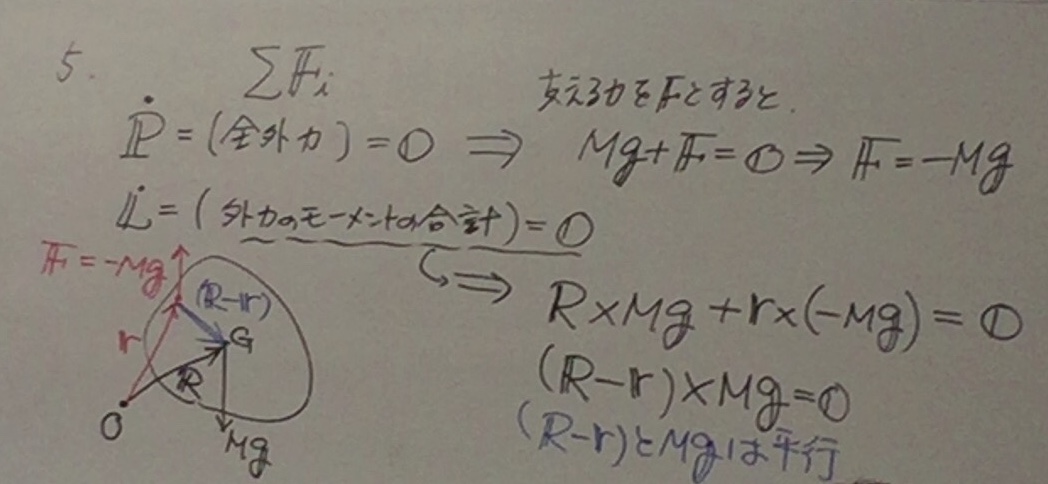 5.
ΣFi
支える力をFとすると、
Ṗ = (全外力) = 0 ⇒ Mg+F=0 ⇒ F=-Mg
L̇ = (外力のモーメントの合計) = 0
⇒ R×Mg+r×(-Mg)=0
(R-r)×Mg=0
(R-r)とMgは平行
F=-Mg
(R-r)
r
G
R
O
Mg